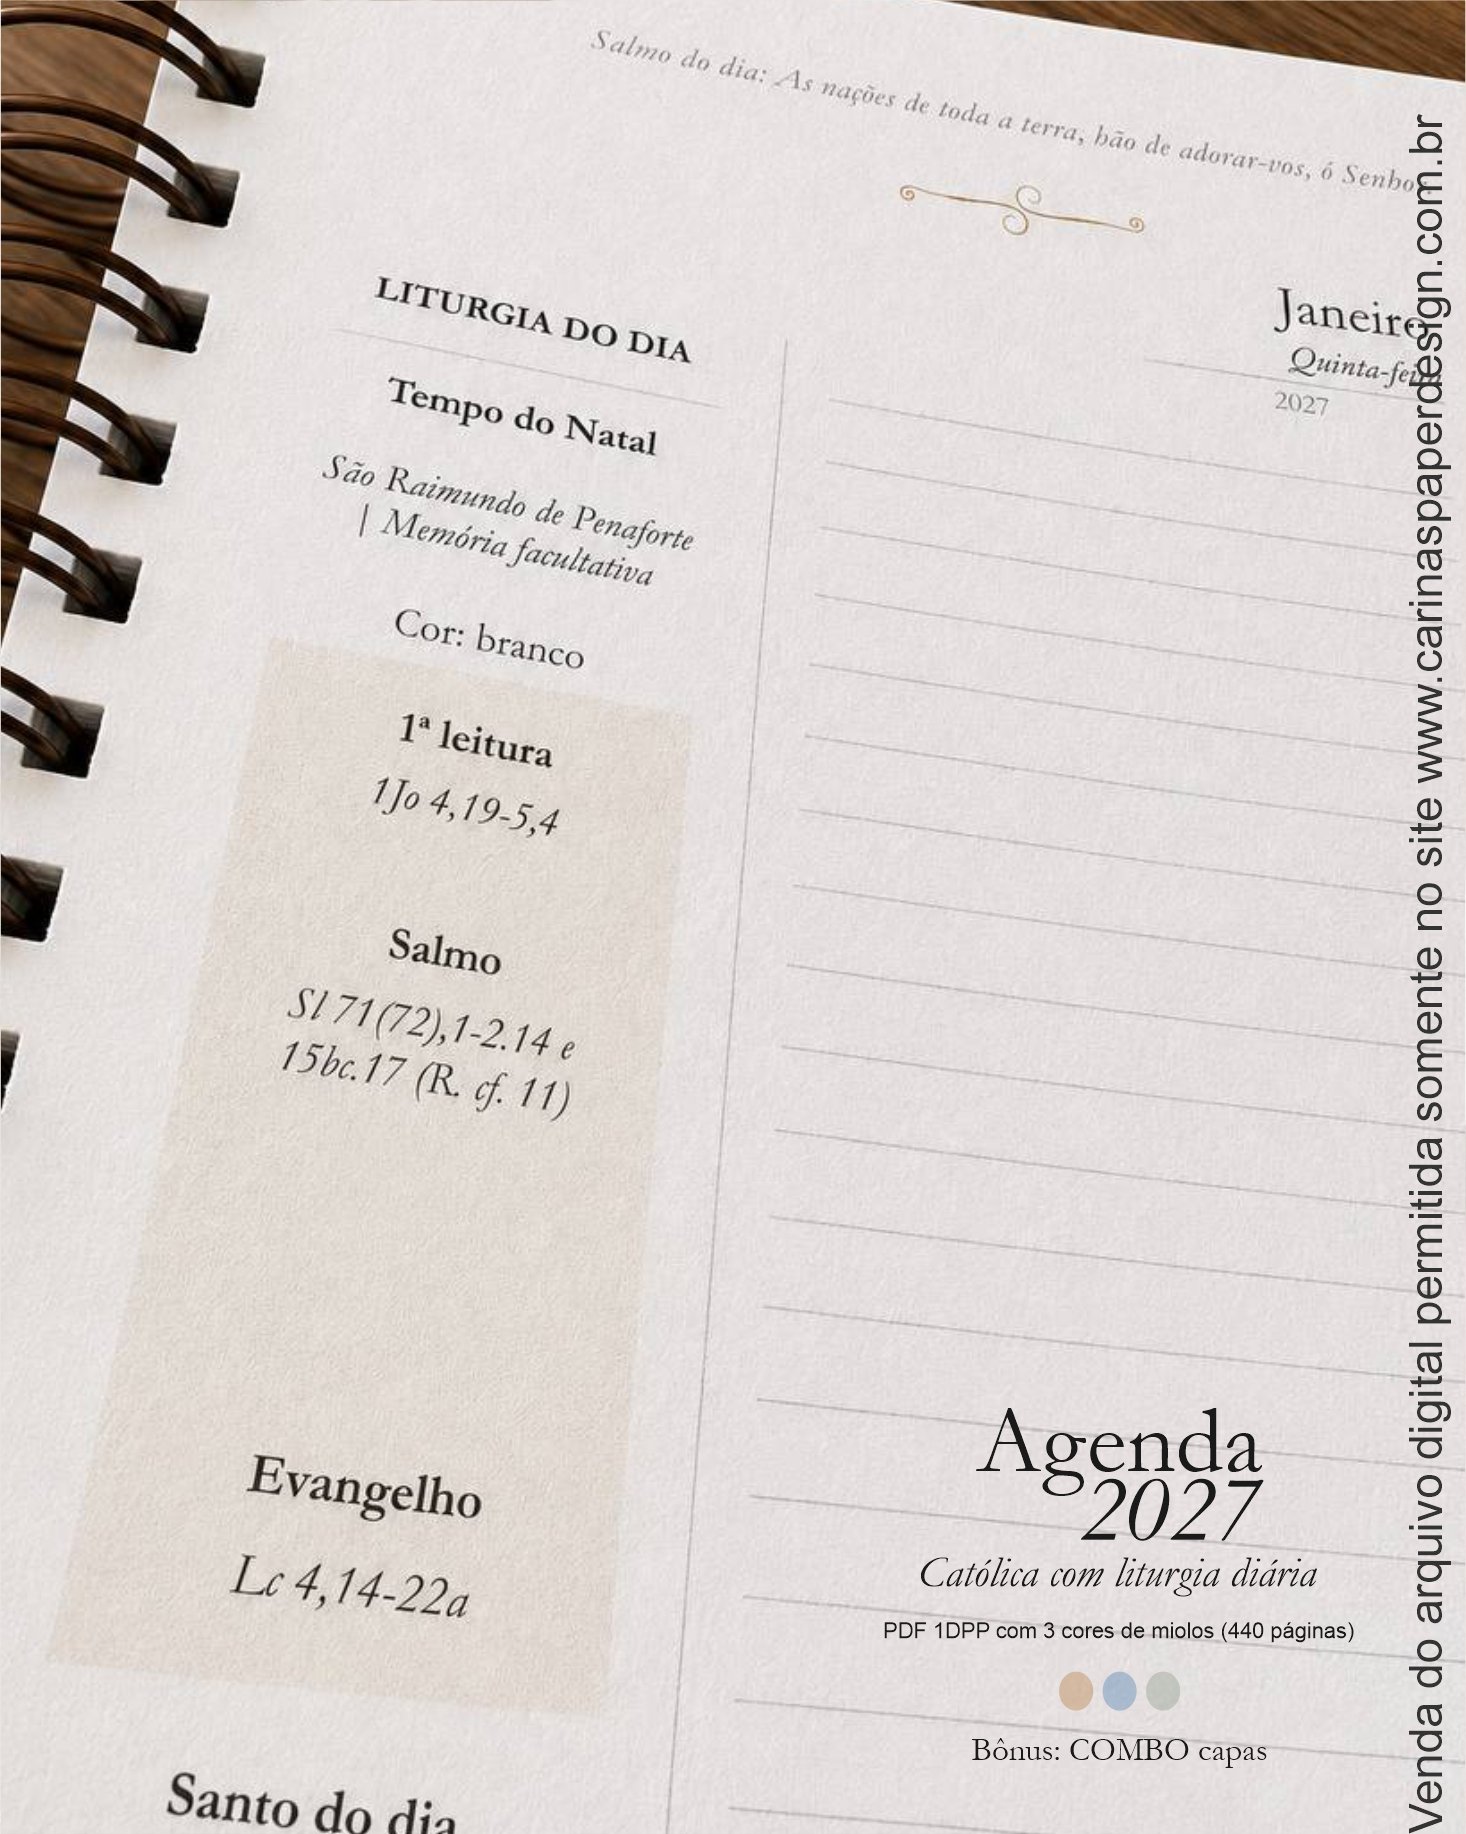 Salmo do dia: As nações de toda a terra, hão de adorar-vos, ó Senhor.
LITURGIA DO DIA
Tempo do Natal
São Raimundo de Penaforte
| Memória facultativa
Cor: branco
1ª leitura
1Jo 4,19-5,4
Salmo
Sl 71(72),1-2.14 e
15bc.17 (R. cf. 11)
Evangelho
Lc 4,14-22a
Santo do dia
Janeiro
Quinta-feira
2027
Agenda
2027
Católica com liturgia diária
PDF 1DPP com 3 cores de miolos (440 páginas)
Bônus: COMBO capas
Venda do arquivo digital permitida somente no site www.carinaspaperdesign.com.br